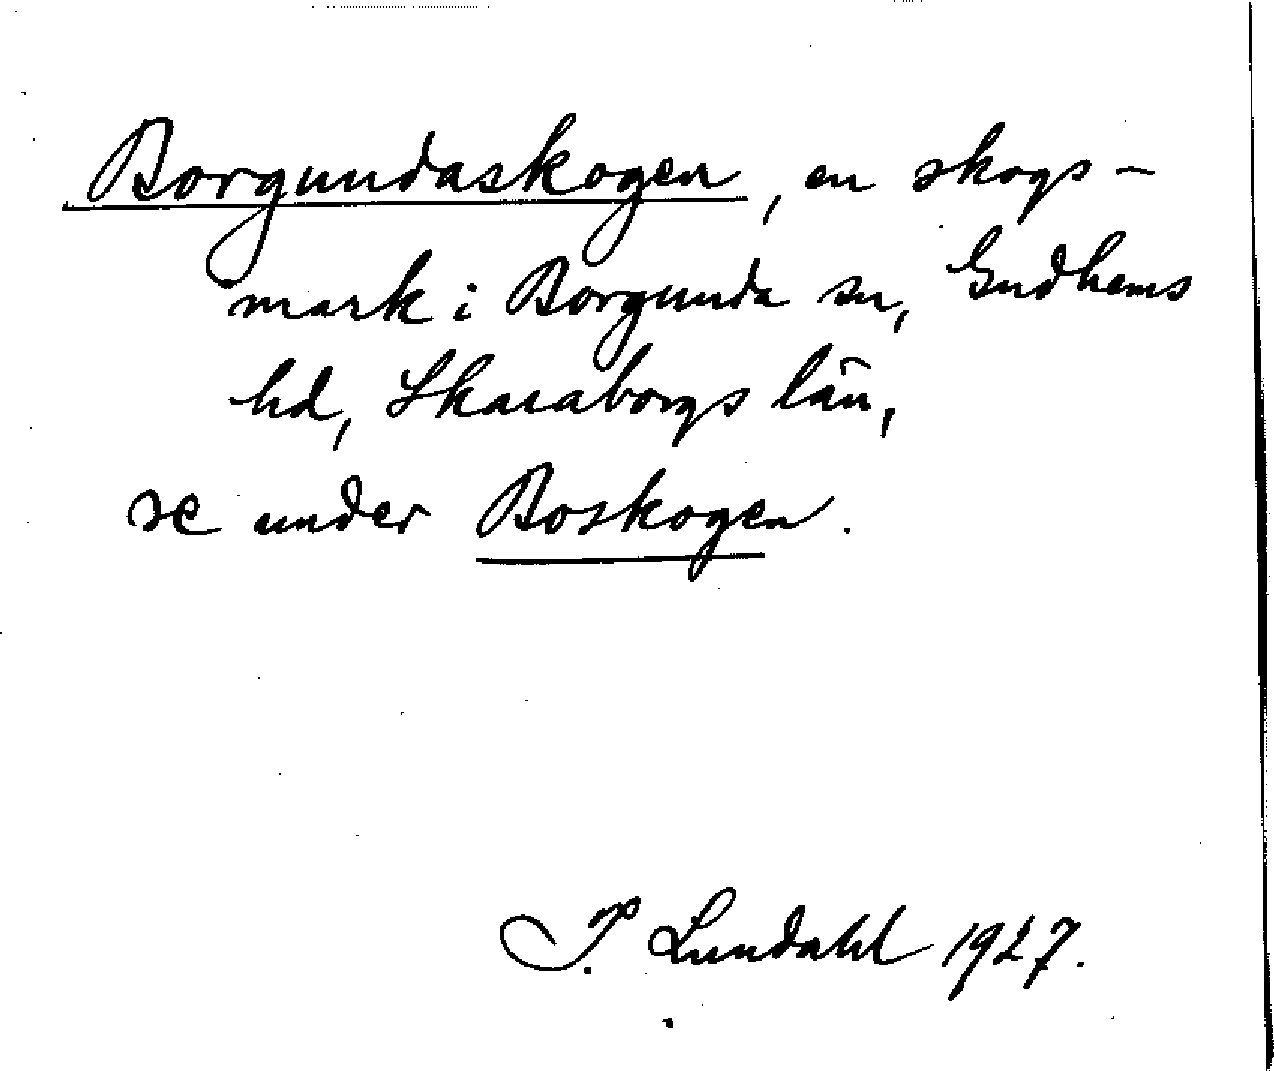 Borgundaskogen, en skogs-
mark i Borgunda sn, Gudhems
hd, Skaraborgs län,
se under Boskogen.
I. Lundahl 1927.